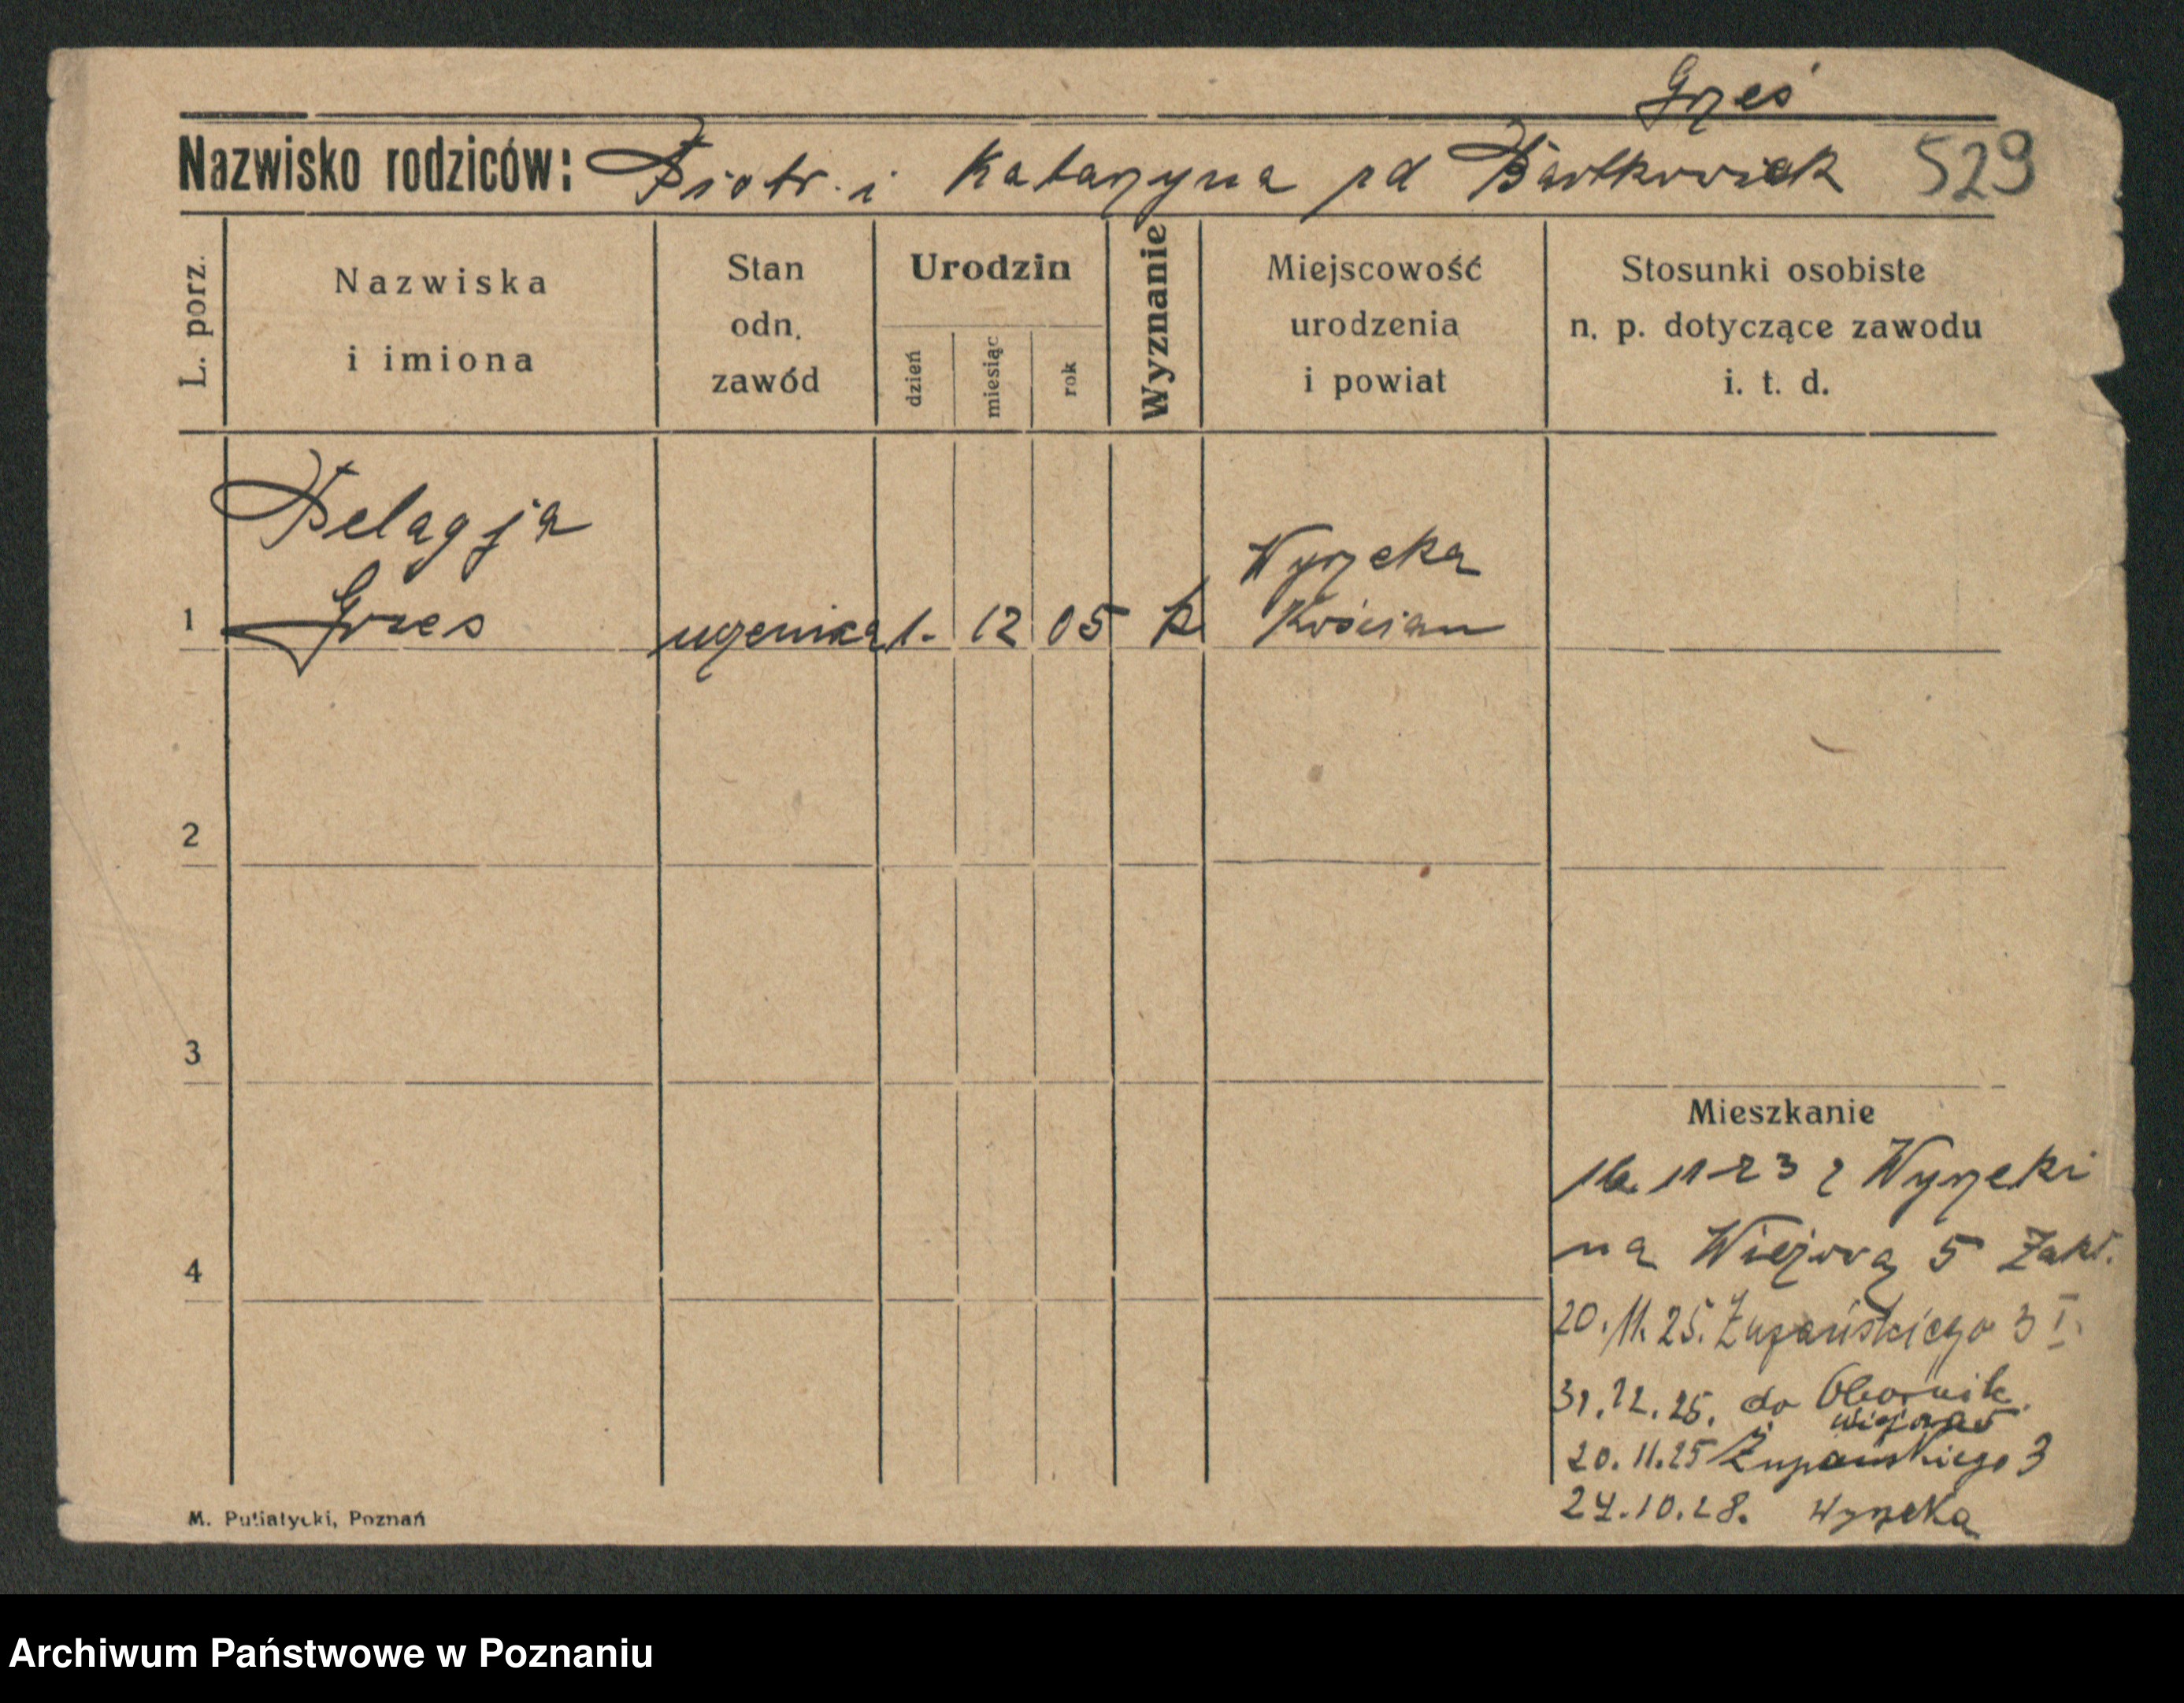 Grześ
Nazwisko rodziców: Piotr i Katarzyna rd Bartkowiak 529
L. porz.
Nazwiska
i imiona
Stan
odn.
zawód
Urodzin
dzień
miesiąc
rok
Wyznanie
Miejscowość
urodzenia
i powiat
Stosunki osobiste
n. p. dotyczące zawodu
i. t. d.
Pelagja
1 Grzes uczenica 1. 12 05 k Wyrzeka
Kościan
2
3
4
Mieszkanie
16. 11 23 z Wyrzeki
na Wiejzną 5 Zakł.
20. 11. 25. Żupańskiego 3 I.
31. 12. 25. do Obornik.
20. 11. 25 Żupańskiego 3
24. 10. 28. Wyrzeka
M. Putiatycki, Poznań
Archiwum Państwowe w Poznaniu